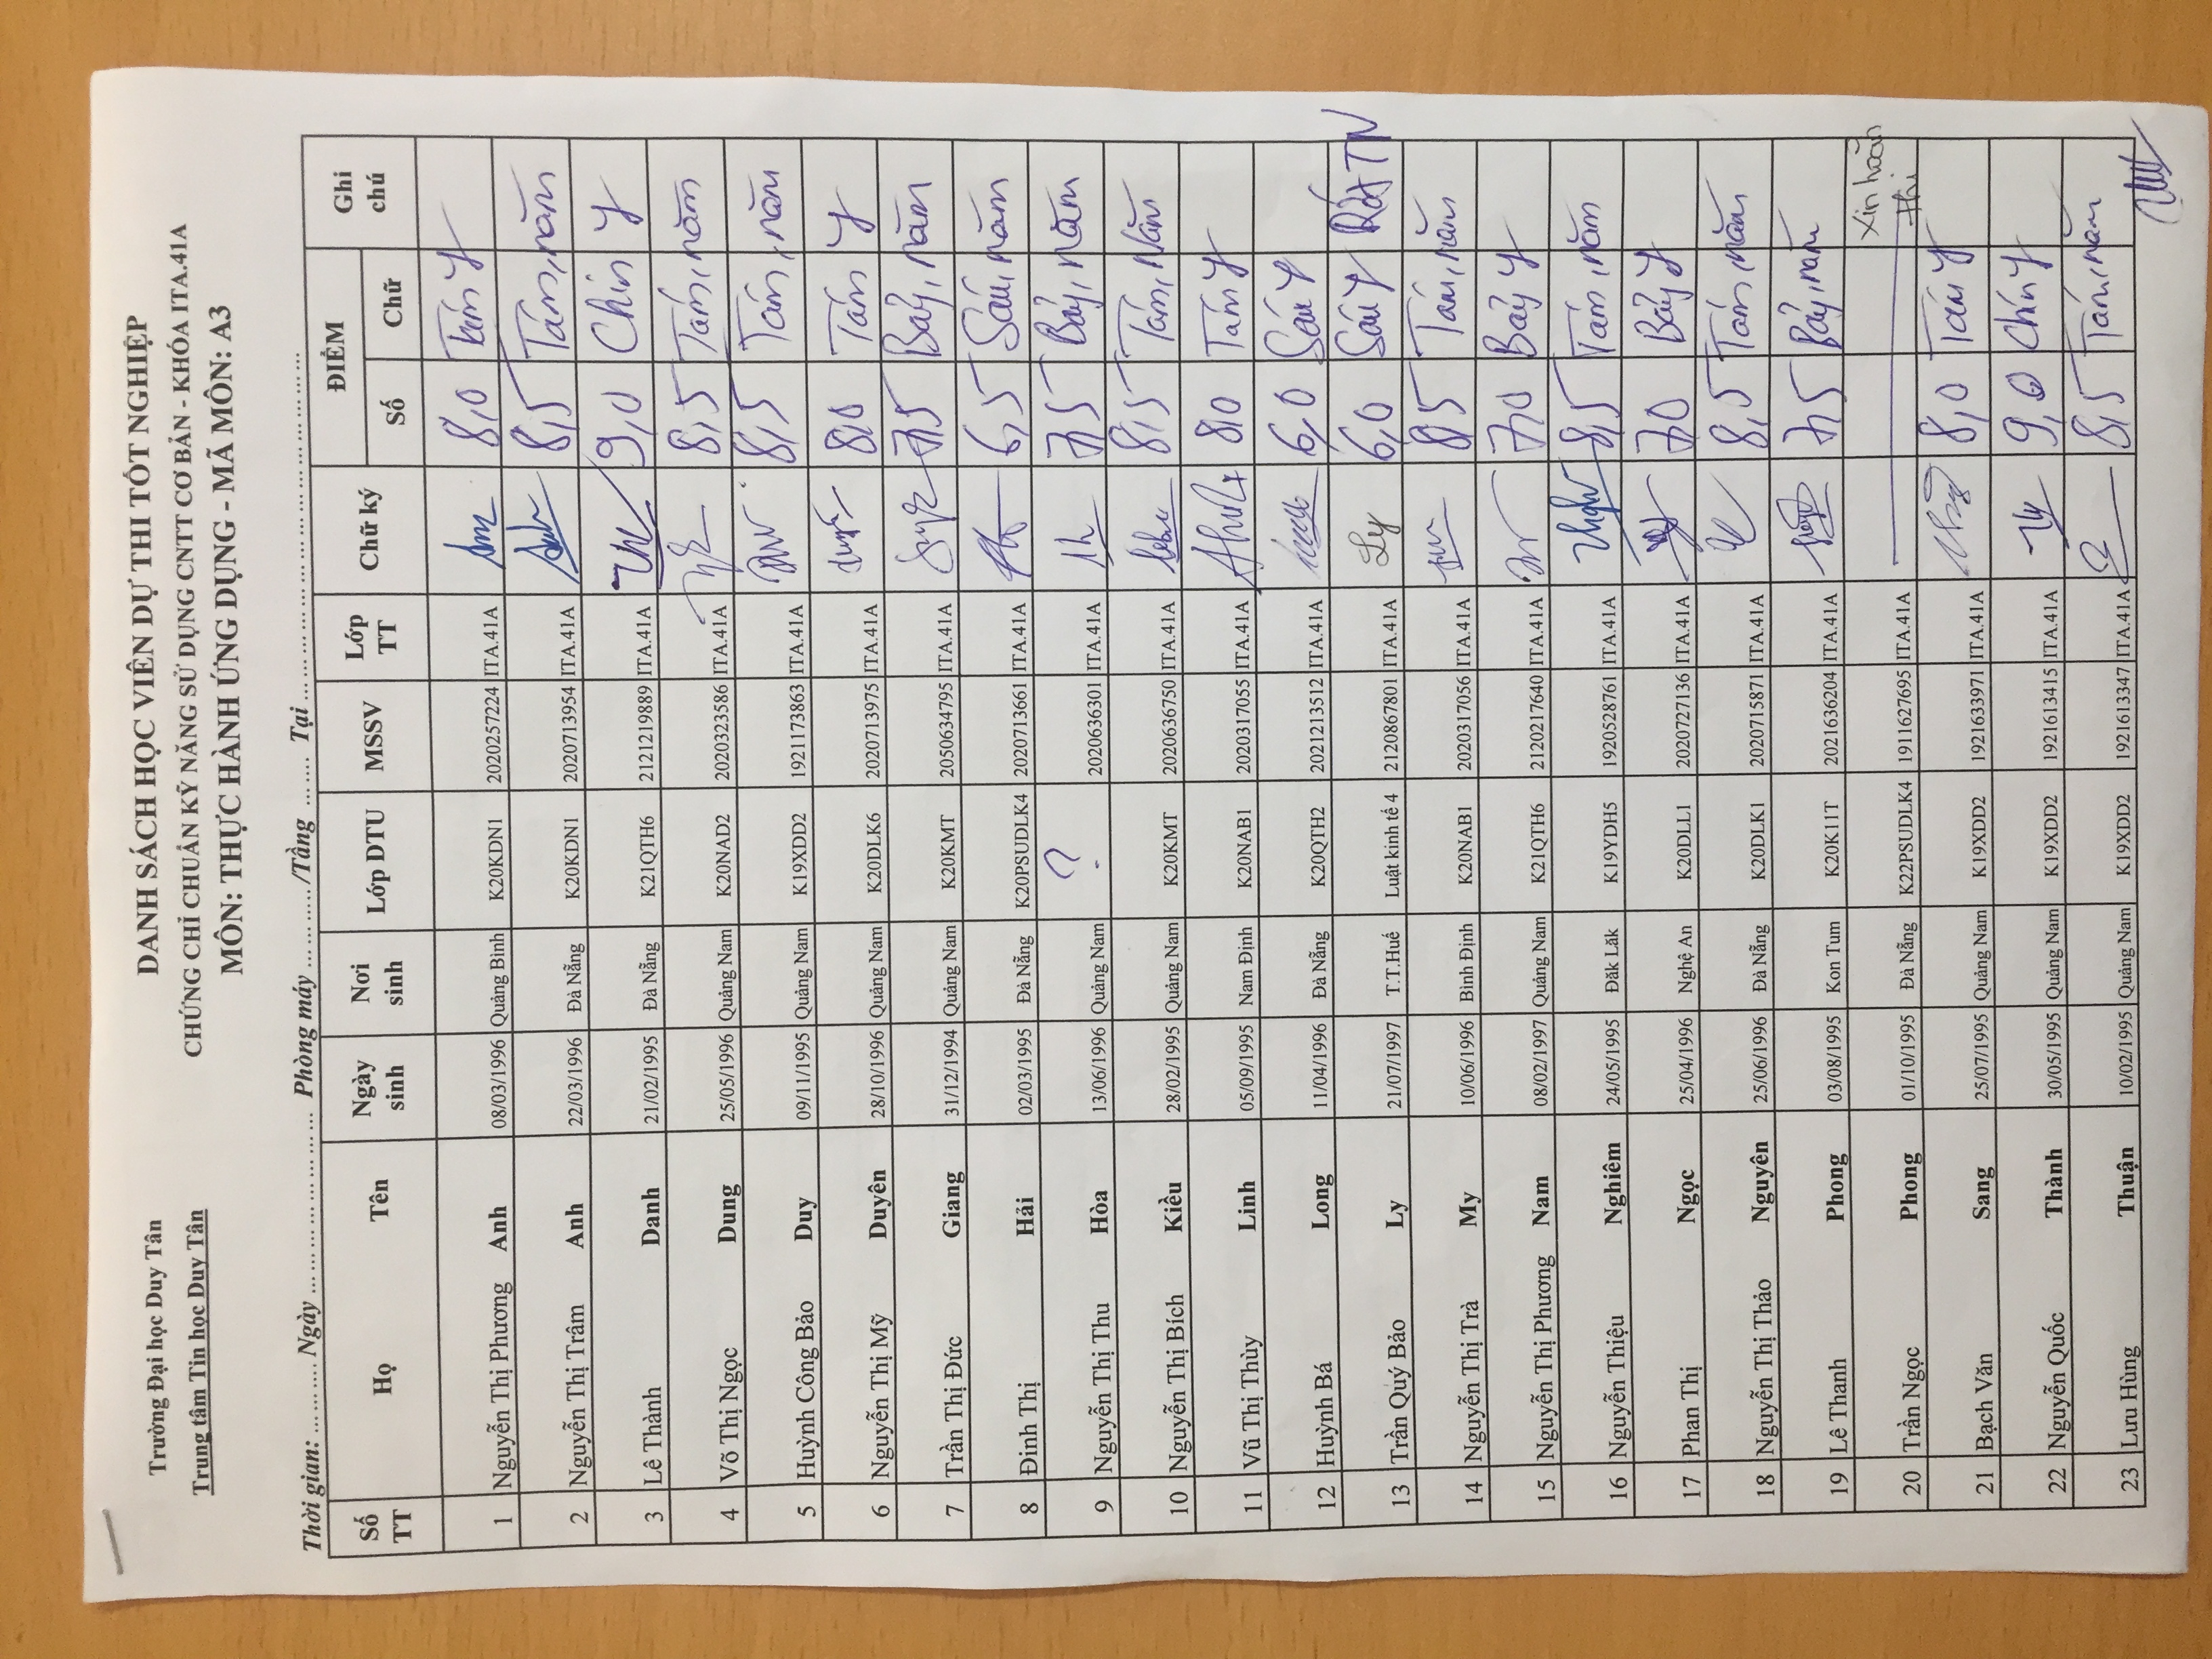 Trường Đại học Duy Tân
Trung tâm Tin học Duy Tân
DANH SÁCH HỌC VIÊN DỰ THI TỐT NGHIỆP
CHỨNG CHỈ CHUẨN KỸ NĂNG SỬ DỤNG CNTT CƠ BẢN - KHÓA ITA.41A
MÔN: THỰC HÀNH ỨNG DỤNG - MÃ MÔN: A3
Thời gian: ............ Ngày ........................ Phòng máy ............/Tầng ....... Tại ........................
Số TT Họ Tên Ngày sinh Nơi sinh Lớp DTU MSSV Lớp TT Chữ ký ĐIỂM Số Chữ Ghi chú
1 Nguyễn Thị Phương Anh 08/03/1996 Quảng Bình K20KDN1 2020257224 ITA.41A 8,0 Tám y
2 Nguyễn Thị Trâm Anh 22/03/1996 Đà Nẵng K20KDN1 2020713954 ITA.41A 8,5 Tám, năm
3 Lê Thành Danh 21/02/1995 Đà Nẵng K21QTH6 2121219889 ITA.41A 9,0 Chín y
4 Võ Thị Ngọc Dung 25/05/1996 Quảng Nam K20NAD2 2020323586 ITA.41A 8,5 Tám, năm
5 Huỳnh Công Bảo Duy 09/11/1995 Quảng Nam K19XDD2 1921173863 ITA.41A 8,5 Tám, năm
6 Nguyễn Thị Mỹ Duyên 28/10/1996 Quảng Nam K20DLK6 2020713975 ITA.41A 8,0 Tám y
7 Trần Thị Đức Giang 31/12/1994 Quảng Nam K20KMT 2050634795 ITA.41A 7,5 Bảy, năm
8 Đinh Thị Hải 02/03/1995 Đà Nẵng K20PSUDLK4 2020713661 ITA.41A 6,5 Sáu, năm
9 Nguyễn Thị Thu Hòa 13/06/1996 Quảng Nam ? 2020636301 ITA.41A 7,5 Bảy, năm
10 Nguyễn Thị Bích Kiều 28/02/1995 Quảng Nam K20KMT 2020636750 ITA.41A 8,5 Tám, Năm
11 Vũ Thị Thùy Linh 05/09/1995 Nam Định K20NAB1 2020317055 ITA.41A 8,0 Tám y
12 Huỳnh Bá Long 11/04/1996 Đà Nẵng K20QTH2 2021213512 ITA.41A 6,0 Sáu y
13 Trần Quý Bảo Ly 21/07/1997 T.T.Huế Luật kinh tế 4 2120867801 ITA.41A Ly 6,0 Sáu y
14 Nguyễn Thị Trà My 10/06/1996 Bình Định K20NAB1 2020317056 ITA.41A 8,5 Tám, năm
15 Nguyễn Thị Phương Nam 08/02/1997 Quảng Nam K21QTH6 2120217640 ITA.41A 7,0 Bảy y
16 Nguyễn Thiệu Nghiêm 24/05/1995 Đăk Lăk K19YDH5 1920528761 ITA.41A 8,5 Tám, năm
17 Phan Thị Ngọc 25/04/1996 Nghệ An K20DLL1 2020727136 ITA.41A 7,0 Bảy y
18 Nguyễn Thị Thảo Nguyên 25/06/1996 Đà Nẵng K20DLK1 2020715871 ITA.41A 8,5 Tám, năm
19 Lê Thanh Phong 03/08/1995 Kon Tum K20K11T 2021636204 ITA.41A 7,5 Bảy, năm
20 Trần Ngọc Phong 01/10/1995 Đà Nẵng K22PSUDLK4 1911627695 ITA.41A Xin hoãn thi
21 Bạch Văn Sang 25/07/1995 Quảng Nam K19XDD2 1921633971 ITA.41A 8,0 Tám y
22 Nguyễn Quốc Thành 30/05/1995 Quảng Nam K19XDD2 1921613415 ITA.41A 9,0 Chín y
23 Lưu Hùng Thuận 10/02/1995 Quảng Nam K19XDD2 1921613347 ITA.41A 8,5 Tám, năm